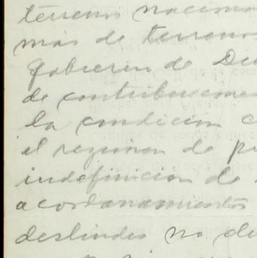 terreno nacional
mas de terreno
Gobierno de De
de contribucione
la condicion
el regimen de p
indefinicion de
acordonamientos
deslindes no de